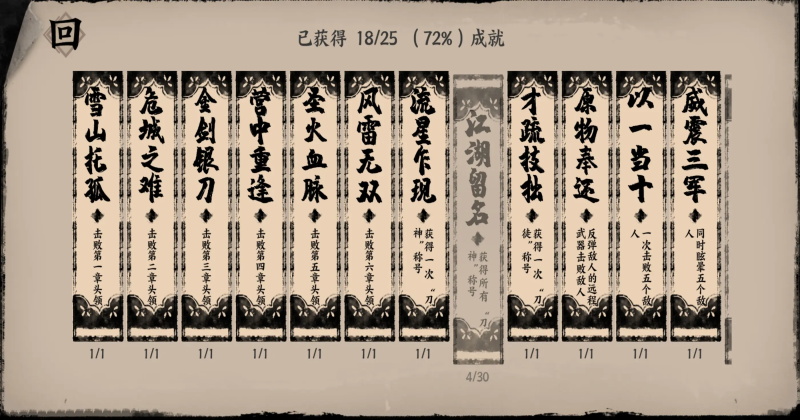 回
已获得 18/25 （72%）成就
雪山托孤
击败第一章头领
1/1
危城之难
击败第二章头领
1/1
金剑银刀
击败第三章头领
1/1
营中重逢
击败第四章头领
1/1
圣火血脉
击败第五章头领
1/1
风雷无双
击败第六章头领
1/1
流星乍现
获得一次“刀
神”称号
1/1
江湖留名
获得所有“刀
神”称号
4/30
才疏技拙
获得一次“刀
徒”称号
1/1
原物奉还
反弹敌人的远程
武器击败敌人
1/1
以一当十
一次击败五个敌
人
1/1
威震三军
同时眩晕五个敌
人
1/1